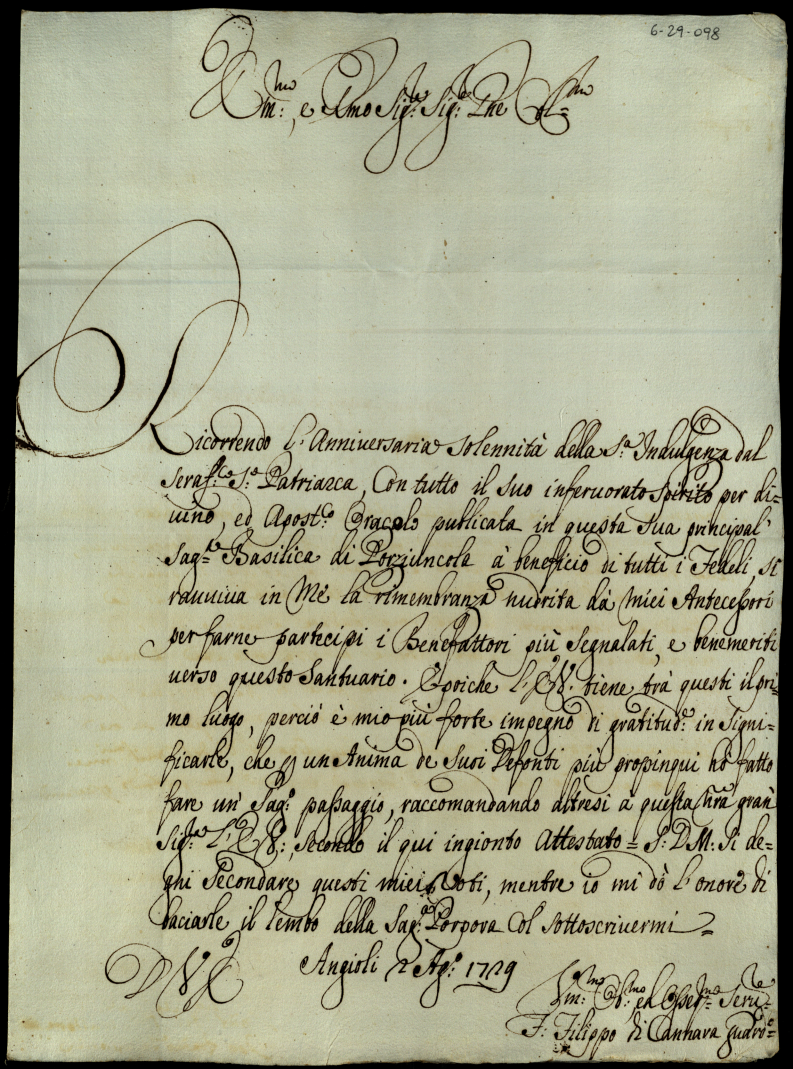 6-29-098
Em:mo, e Rmo Sig:re Sig:re Pne Col=mo
Ricorrendo l'Anniversaria solennità della S:a Indulgenza dal
Seraf:co S:o Patriarca, Con tutto il suo infervorato spirito per di=
uino, ed Apost:co Oracolo publicata in questa sua principal'
Sag:ta Basilica di Porziuncola à beneficio di tutti i Fedeli, si
rauuiua in Mè la rimembranza nudrita dà Miei Antecessori
per farne partecipi i Benefattori più segnalati, e benemeriti
uerso questo Santuario. E poiche l'E.V. tiene trà questi il pri=
mo luogo, perciò è mio più forte impegno di gratitud:e in signi=
ficarle, che p un Anima de Suoi Defonti più propinqui hò fatto
fare un' Sag:o passaggio, raccomandando altresì à questa nrã gran'
Sig:ra L'E:V:, secondo il qui ingionto Attestato = S:D.M: si de=
gni secondare questi miei Voti, mentre io mi dò l'onore di
baciarle il lembo della Sag:a Porpora col sottoscriuermi =
D V E
Angioli 2 Ag:o 1729
Vm:mo Ob:mo ed Osser:mo Seru:re
F: Filippo di Cannara Guard:o=